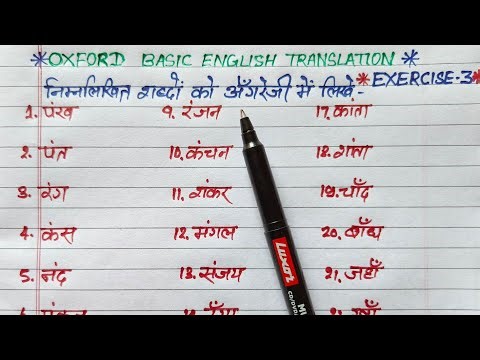 *OXFORD BASIC ENGLISH TRANSLATION*
निम्नलिखित शब्दों को अँगरेजी में लिखें:- *EXERCISE-3*
1. पंख 9. रंजन 17. कांता
2. पंत 10. कंचन 18. शांता
3. रंग 11. शंकर 19. चाँद
4. कंस 12. मंगल 20. बाँध
5. नंद 13. संजय 21. जहाँ
LUXOR